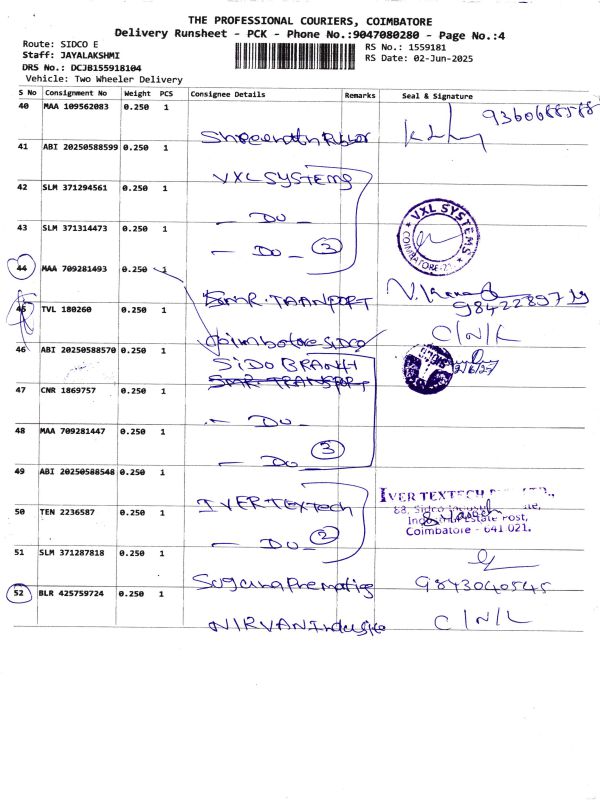 THE PROFESSIONAL COURIERS, COIMBATORE
Delivery Runsheet - PCK - Phone No.:9047080280 - Page No.:4
Route: SIDCO E
Staff: JAYALAKSHMI
DRS No.: DCJB155918104
Vehicle: Two Wheeler Delivery
RS No.: 1559181
RS Date: 02-Jun-2025
S No Consignment No Weight PCS Consignee Details Remarks Seal & Signature
40 MAA 109562083 0.250 1 9360688588
41 ABI 20250588599 0.250 1 VXL SYSTEMS
42 SLM 371294561 0.250 1 — DO —
43 SLM 371314473 0.250 1 — DO — 3
VXL SYSTEMS COIMBATORE-21
44 MAA 709281493 0.250 1 SMR. TRANPORT
45 TVL 180260 0.250 1 Coimbatore SIDCO C/N/L
46 ABI 20250588570 0.250 1 SIDO BRANH
SMR TRANSPORT
47 CNR 1869757 0.250 1 — DO —
48 MAA 709281447 0.250 1 — DO — 3
49 ABI 20250588548 0.250 1 IVER TEXTech
50 TEN 2236587 0.250 1 — DO — 2
IVER TEXTECH
88, Sidco
Industrial Estate Post,
Coimbatore - 641 021.
51 SLM 371287818 0.250 1 9843040545
52 BLR 425759724 0.250 1 NIRVAN C/N/L